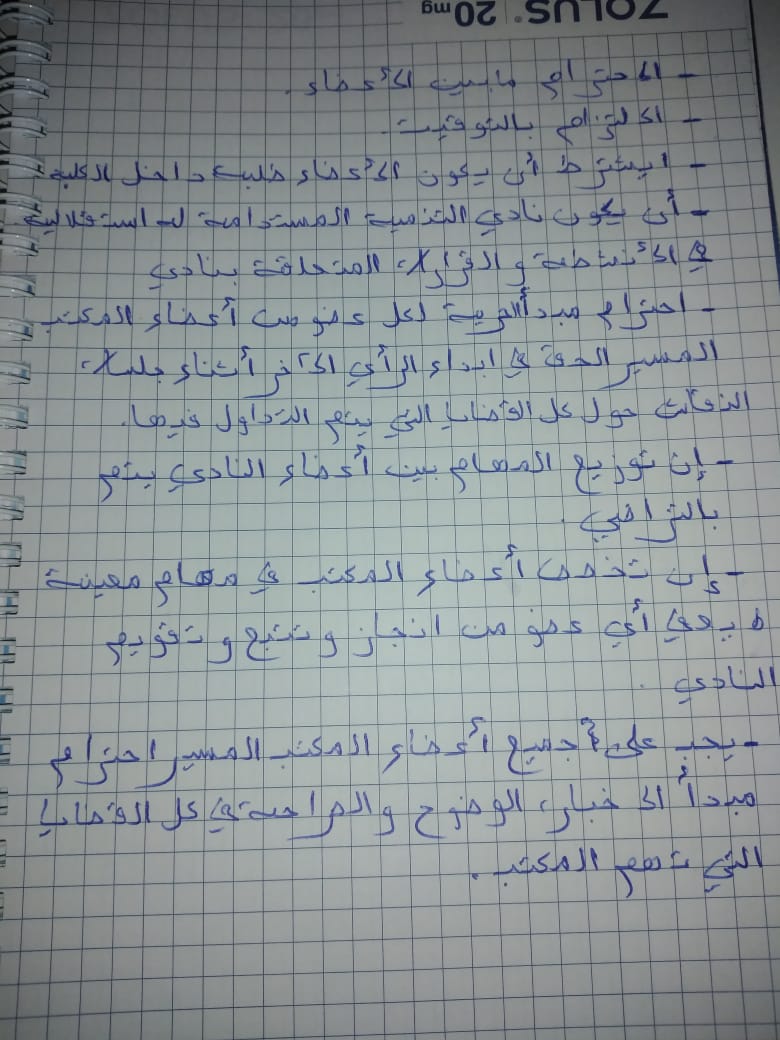 ZOLUS® 20 mg
- الاحترام مابين الأعضاء.
- الالتزام بالتوقيت.
- ايشترط أن يكون الأعضاء طلبة داخل الكلية
- أن يكون نادي التنمية المستدامة له استقلالية
في الأنشطة و القرارات المتعلقة بنادي
- احترام مبدأ الحرية لكل عضو من أعضاء المكتب
المسير الحق في ابداء الرأي الآخر أثناء جلسات
النقاش حول كل القضايا التي يتم التداول فيها.
- إن توزيع المهام بين أعضاء النادي يتم
بالتراضي.
- إن تخصص أعضاء المكتب في مهام معينة
لا يعفي أي عضو من انجاز و تتبع و تقويم
النادي.
- يجب على جميع أعضاء المكتب المسير احترام
مبدأ الاخبار، الوضوح والصراحة في كل القضايا
التي تهم المكتب.